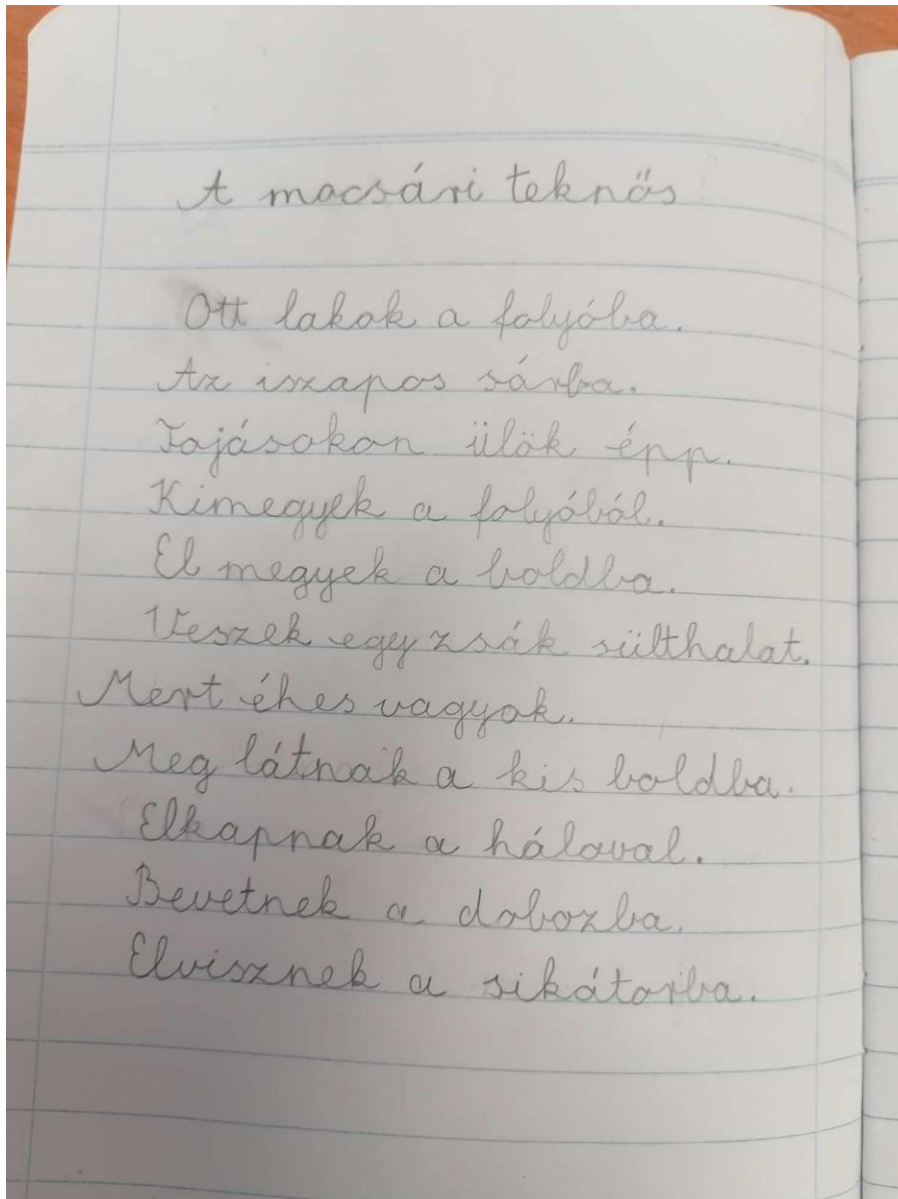 A mocsári teknős
Ott lakok a folyóba.
Az iszapos sárba.
Tojásokon ülök épp.
Kimegyek a folyóból.
El megyek a boldba.
Veszek egy zsák sülthalat.
Mert éhes vagyok.
Meg látnak a kis boldba.
Elkapnak a hálóval.
Bevetnek a dobozba.
Elvisznek a sikátorba.